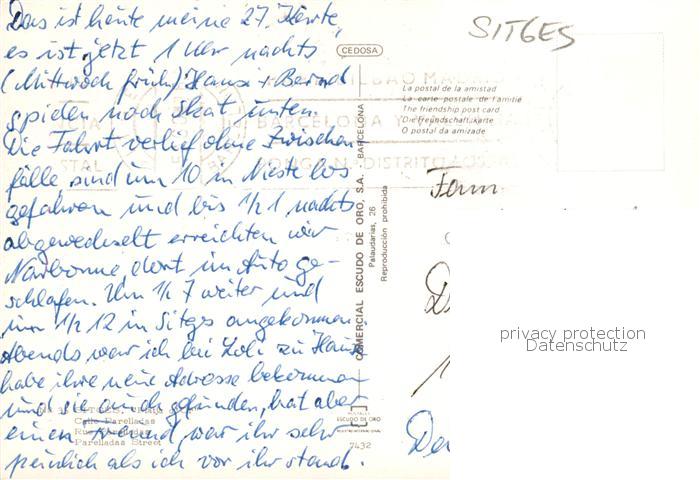 Das ist heute meine 27. Karte,
es ist jetzt 1 Uhr nachts
(Mittwoch früh) Hansi + Bernd
spielen noch Skat unten.
Die Fahrt verlief ohne Zwischen-
fälle, sind um 10 in los
gefahren und bis 1/2 1 nachts
abgewechselt erreichten wir
Narbonne, dort im Auto ge-
schlafen. Um 1/2 7 weiter und
um 1/2 12 in Sitges angekommen.
Abends war ich bei Loli zu Hause
habe ihre neue Adresse bekommen
und sie auch gefunden, hat aber
einen Freund, war ihr sehr
peinlich als ich vor ihr stand.
SITGES
CEDOSA
La postal de la amistad
La carte postale de l'amitié
The friendship post card
Die Freundschaftkarte
O postal da amizade
COMERCIAL ESCUDO DE ORO, S.A. - BARCELONA
Palaudarias, 26
Reproducción prohibida
BARCELONA Y
DISTRITO
Fam
D
De
privacy protection
Datenschutz
SITGES
Calle Parelladas
Rue Parelladas
Parelladas Street
ESCUDO DE ORO
7432